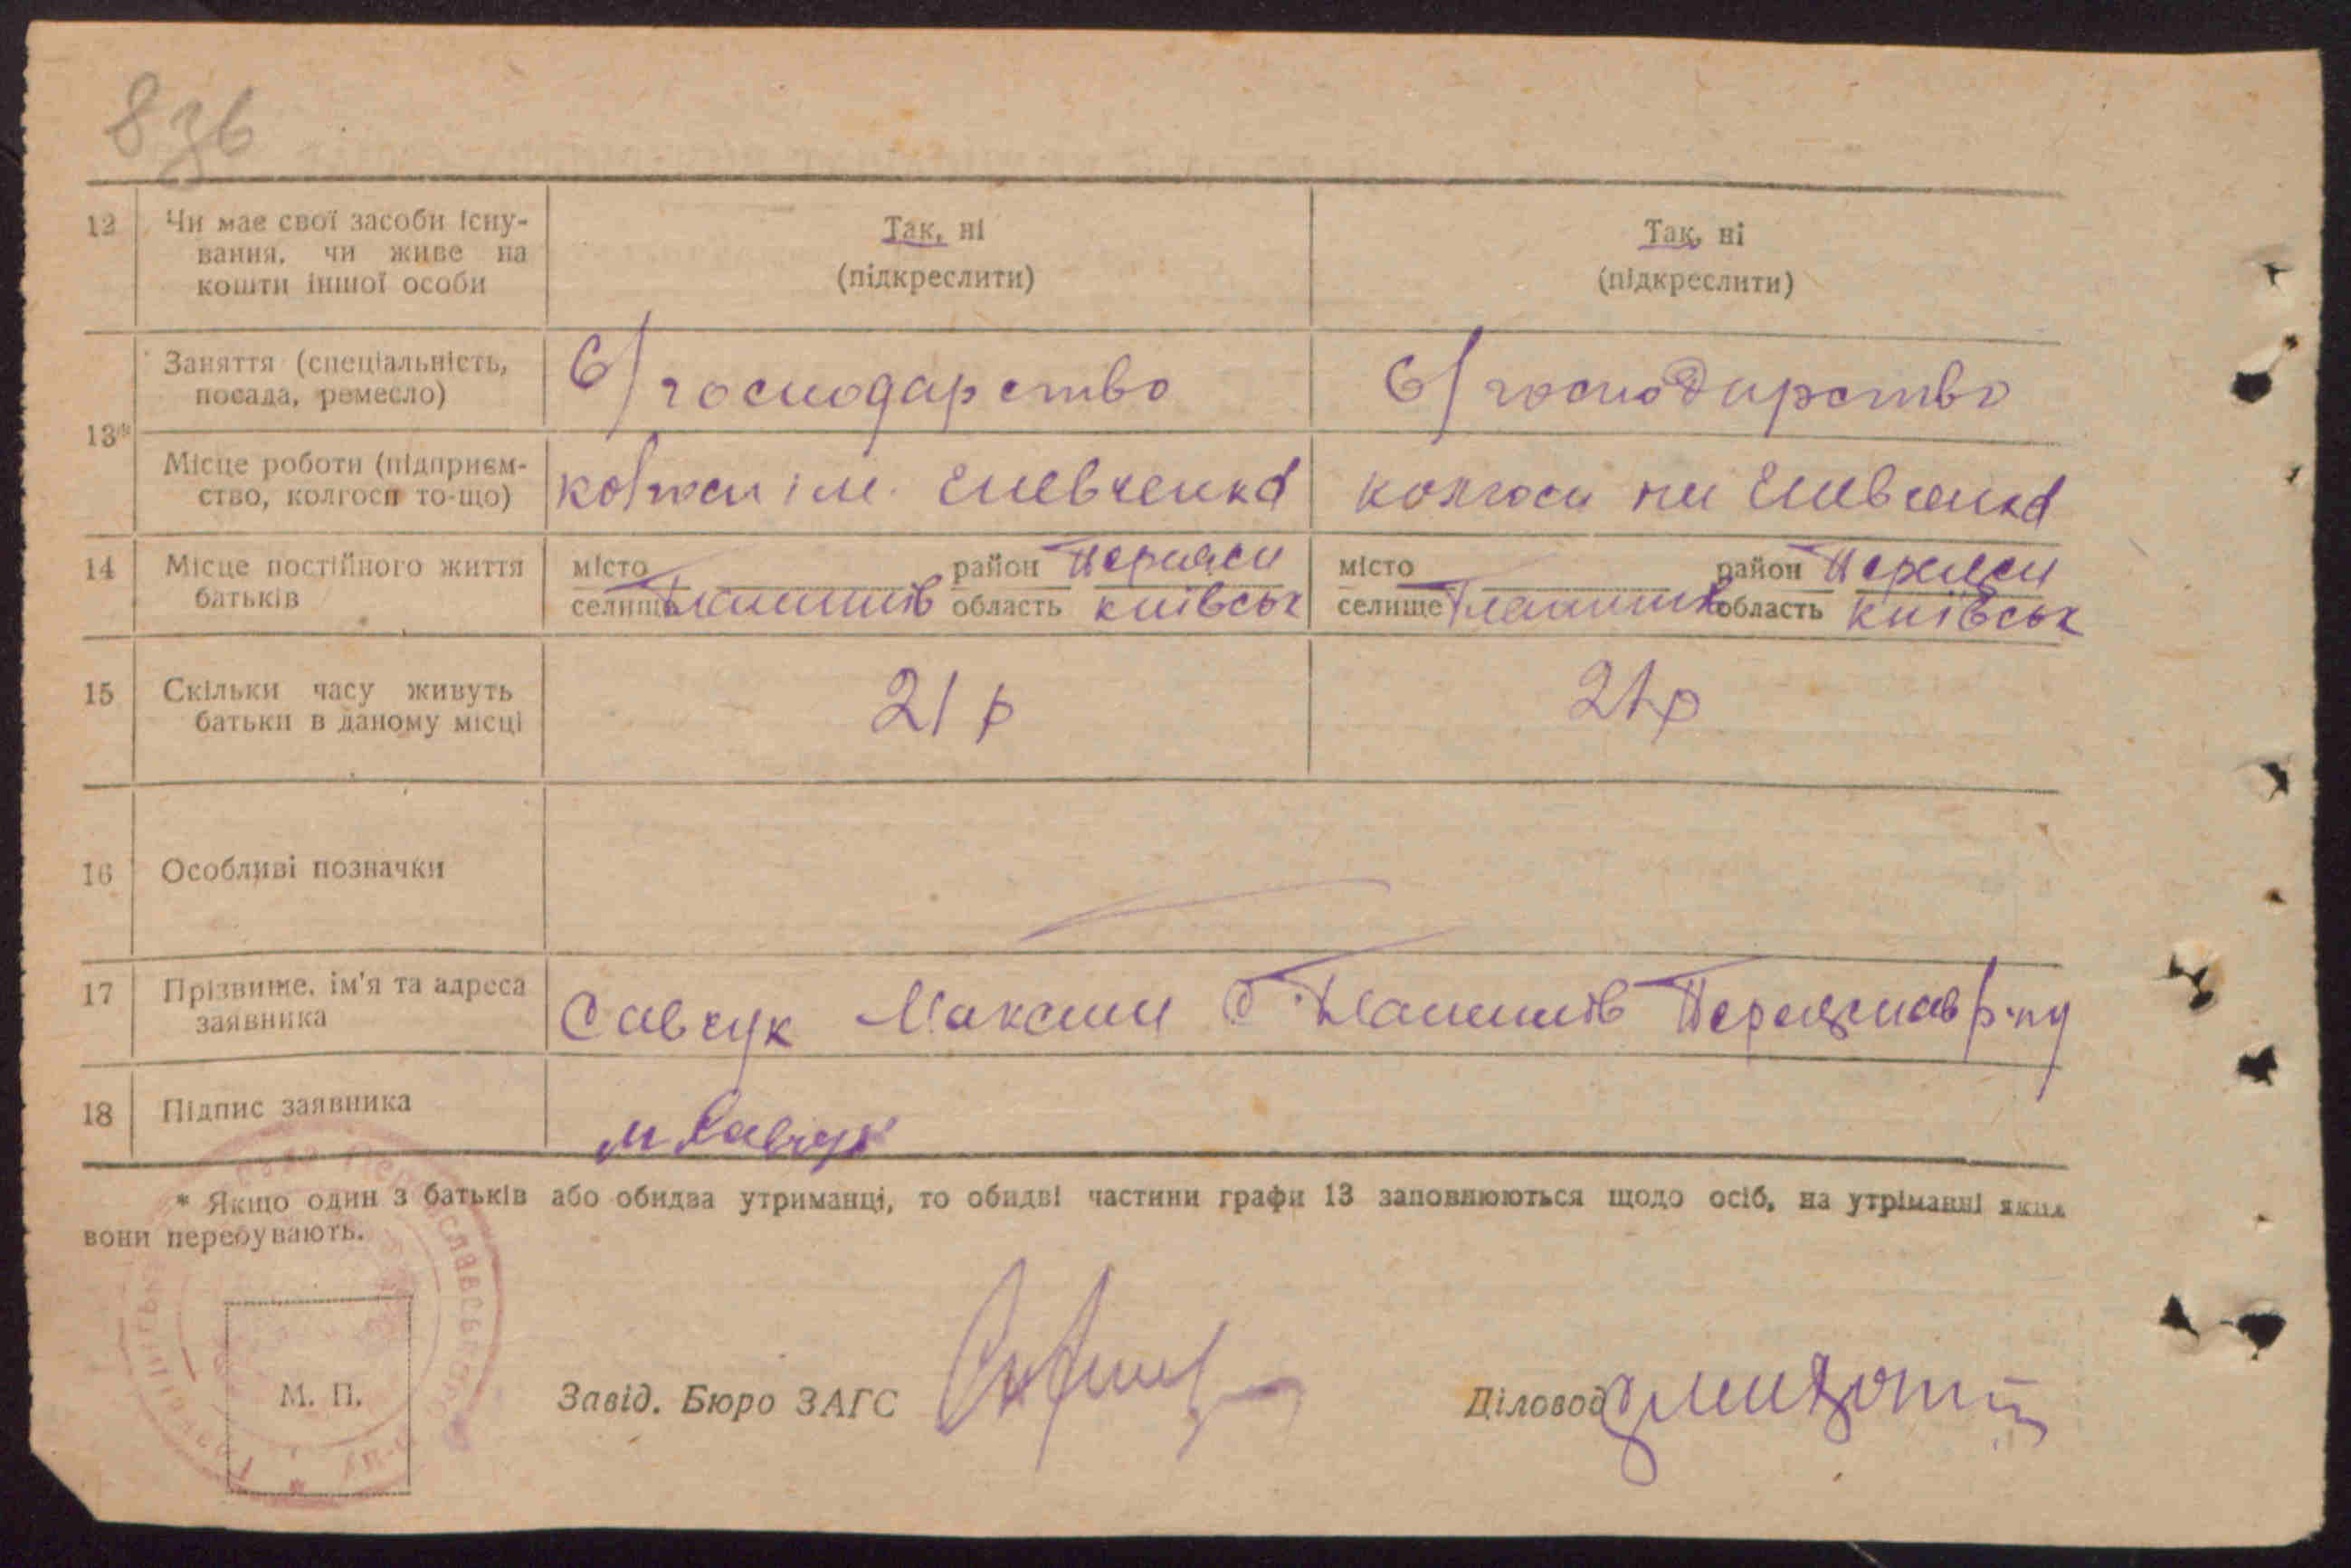 836
12 Чи має свої засоби існу-
вання, чи живе на
кошти іншої особи
Так, ні
(підкреслити)
Так, ні
(підкреслити)
13*
Заняття (спеціальність,
посада, ремесло)
С/господарство
С/господарство
Місце роботи (підприєм-
ство, колгосп то-що)
колгосп ім. Шевченка
колгосп ім Шевченка
14 Місце постійного життя
батьків
місто
селище
район Переясл
область Київськ
місто
селище
район Переясл
область Київськ
15 Скільки часу живуть
батьки в даному місці
21 р
21 р
16 Особливі позначки
17 Прізвище, ім'я та адреса
заявника
Савчук Максим С. Переяслав р-ну
18 Підпис заявника
М Савчук
* Якщо один з батьків або обидва утриманці, то обидві частини графи 13 заповнюються щодо осіб, на утріманні яких
вони перебувають.
М. П.
Завід. Бюро ЗАГС
Діловод